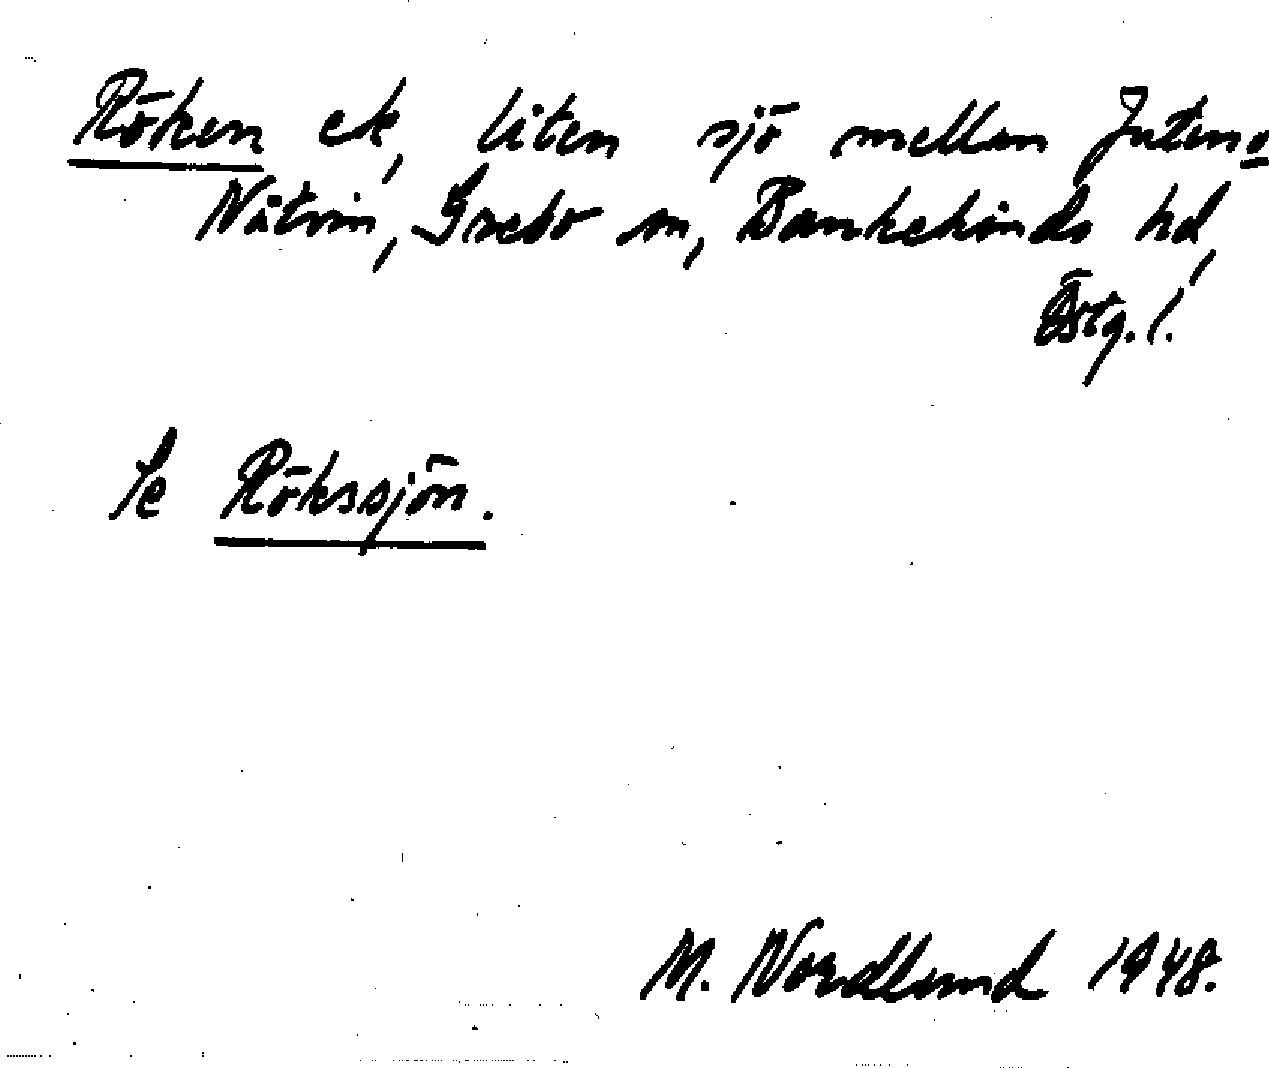 Röken ek, liten sjö mellan Juten o
Nätrin, Grebo sn, Bankekinds hd,
Östg. l.
Se Rökssjön.
M. Nordlund 1948.